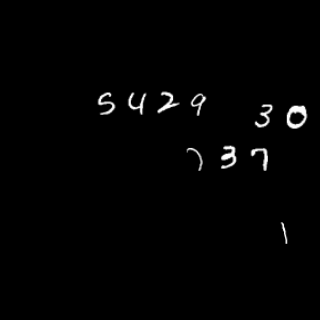 5429 30
737
1